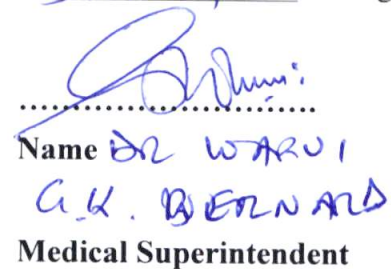 ................................
Name DR WARUI
G.K. BERNARD
Medical Superintendent